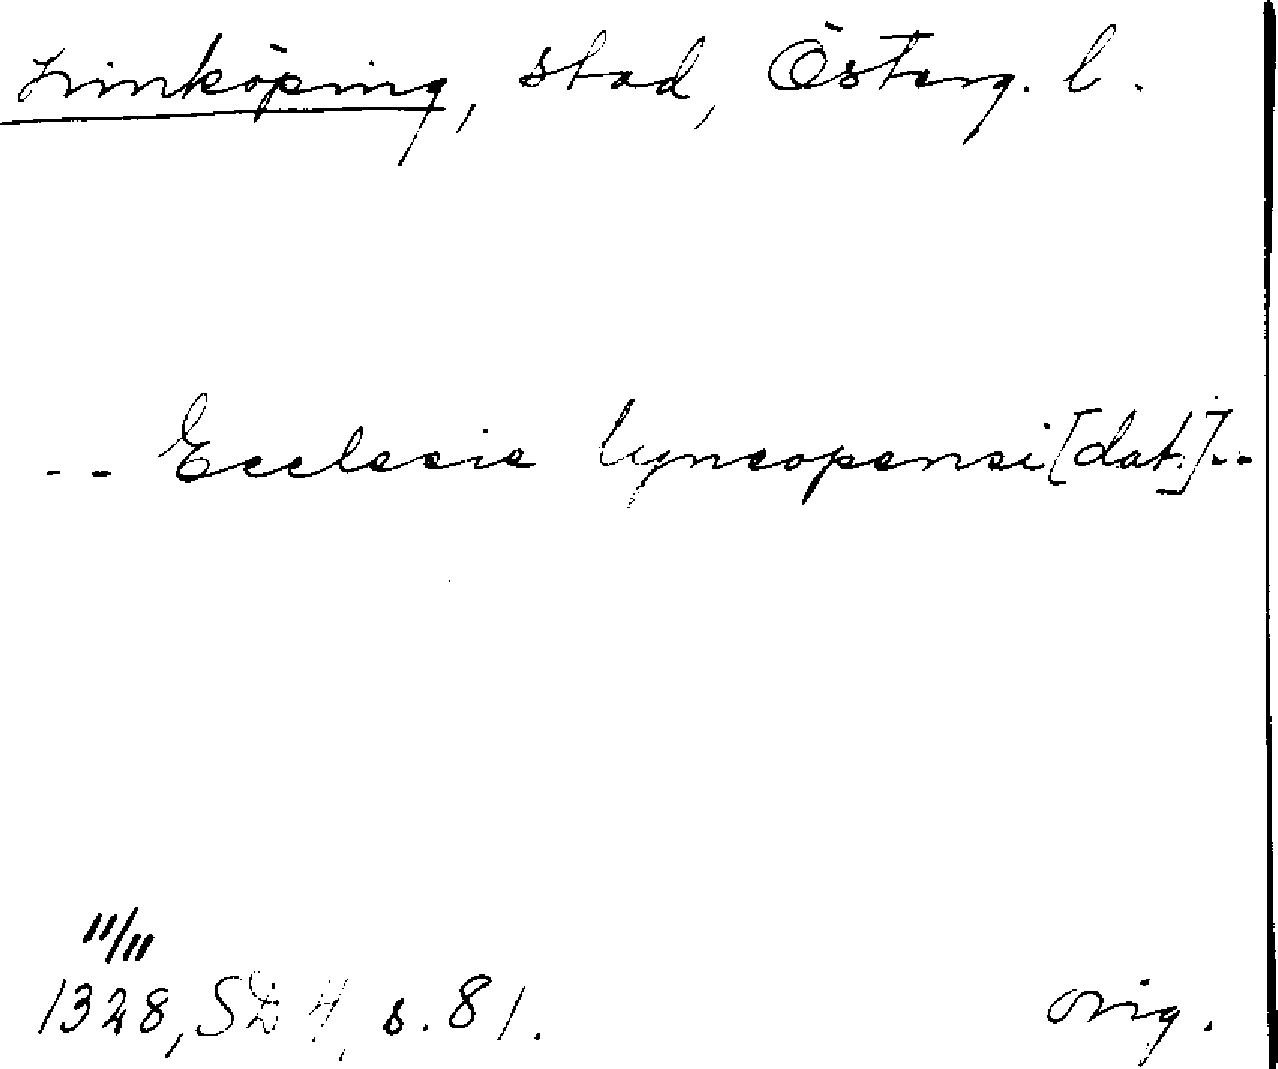 Linköping, stad, Österg. l.
-- Ecclesie lyncopensi [dat.]--
11/11
1328, SD 4, s. 81.
orig.